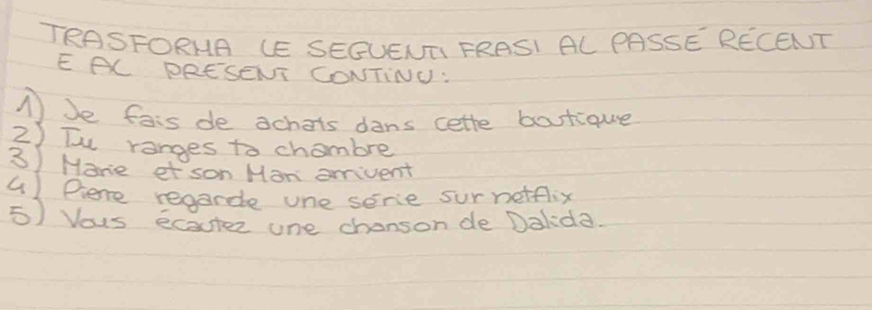 TRASFORMA LE SEGUENTI FRASI AL PASSÉ RÉCENT
E AL PRESENT CONTINU:
1) Je fais de achats dans cette boutique
2) Tu ranges ta chambre
3) Marie et son Mari arrivent
4) Pierre regarde une série sur netflix
5) Vous écoutez une chanson de Dalida.